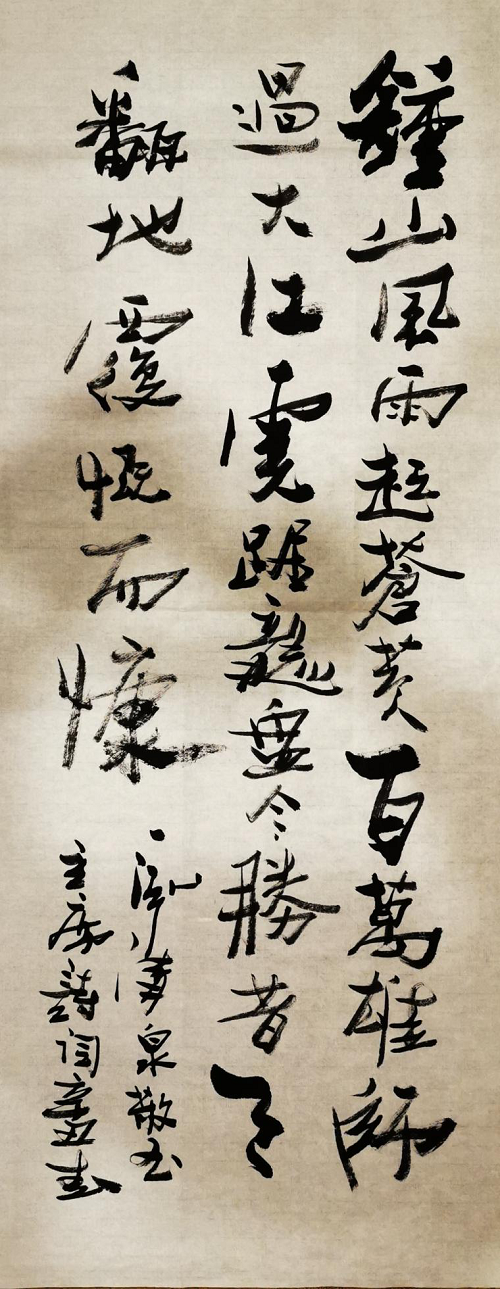 鐘山風雨起蒼黄百萬雄師
過大江虎踞龍盘今勝昔天
翻地覆慨而慷
一泓清泉敬书
主席詩词辛丑春